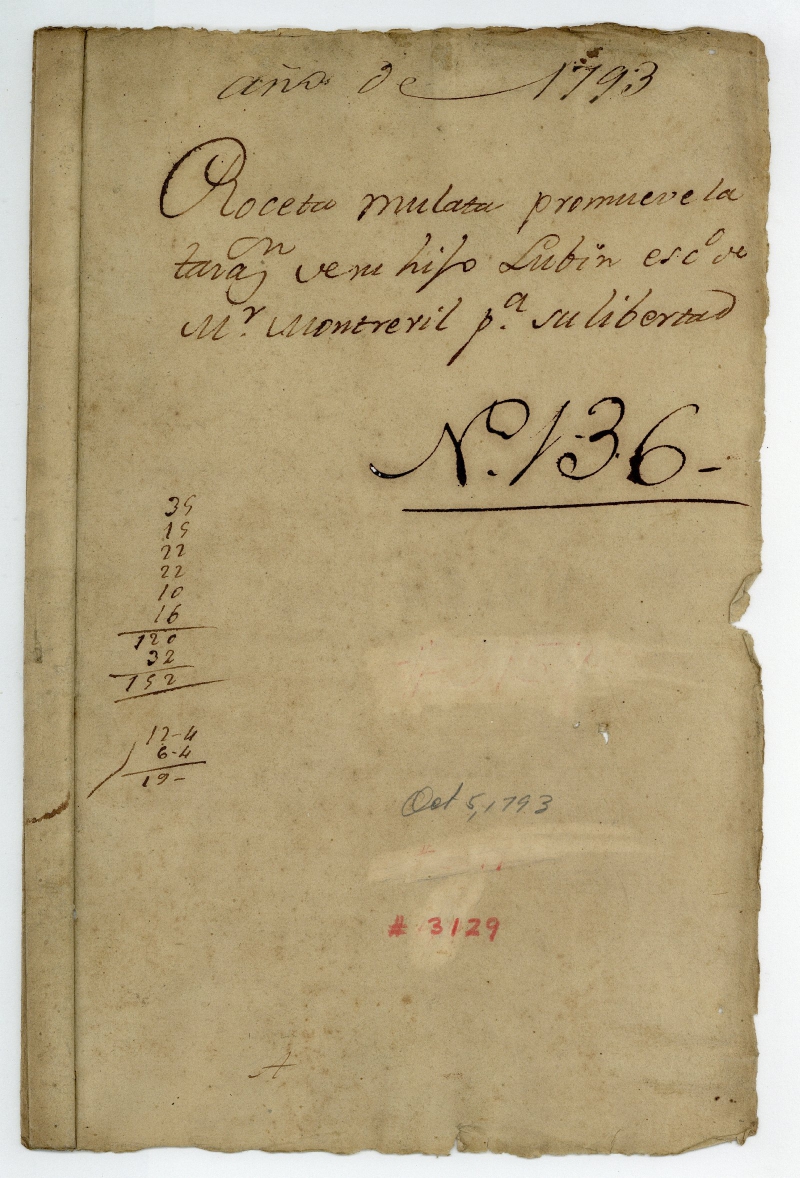 año de 1793
Roceta mulata promueve la
tasaz.n de su hijo Lubin esc.o de
M.r Montrevil p.a su libertad
N.o 136-
35
15
22
22
10
16
120
32
152
12-4
6-4
19-
Oct 5, 1793
# 3129